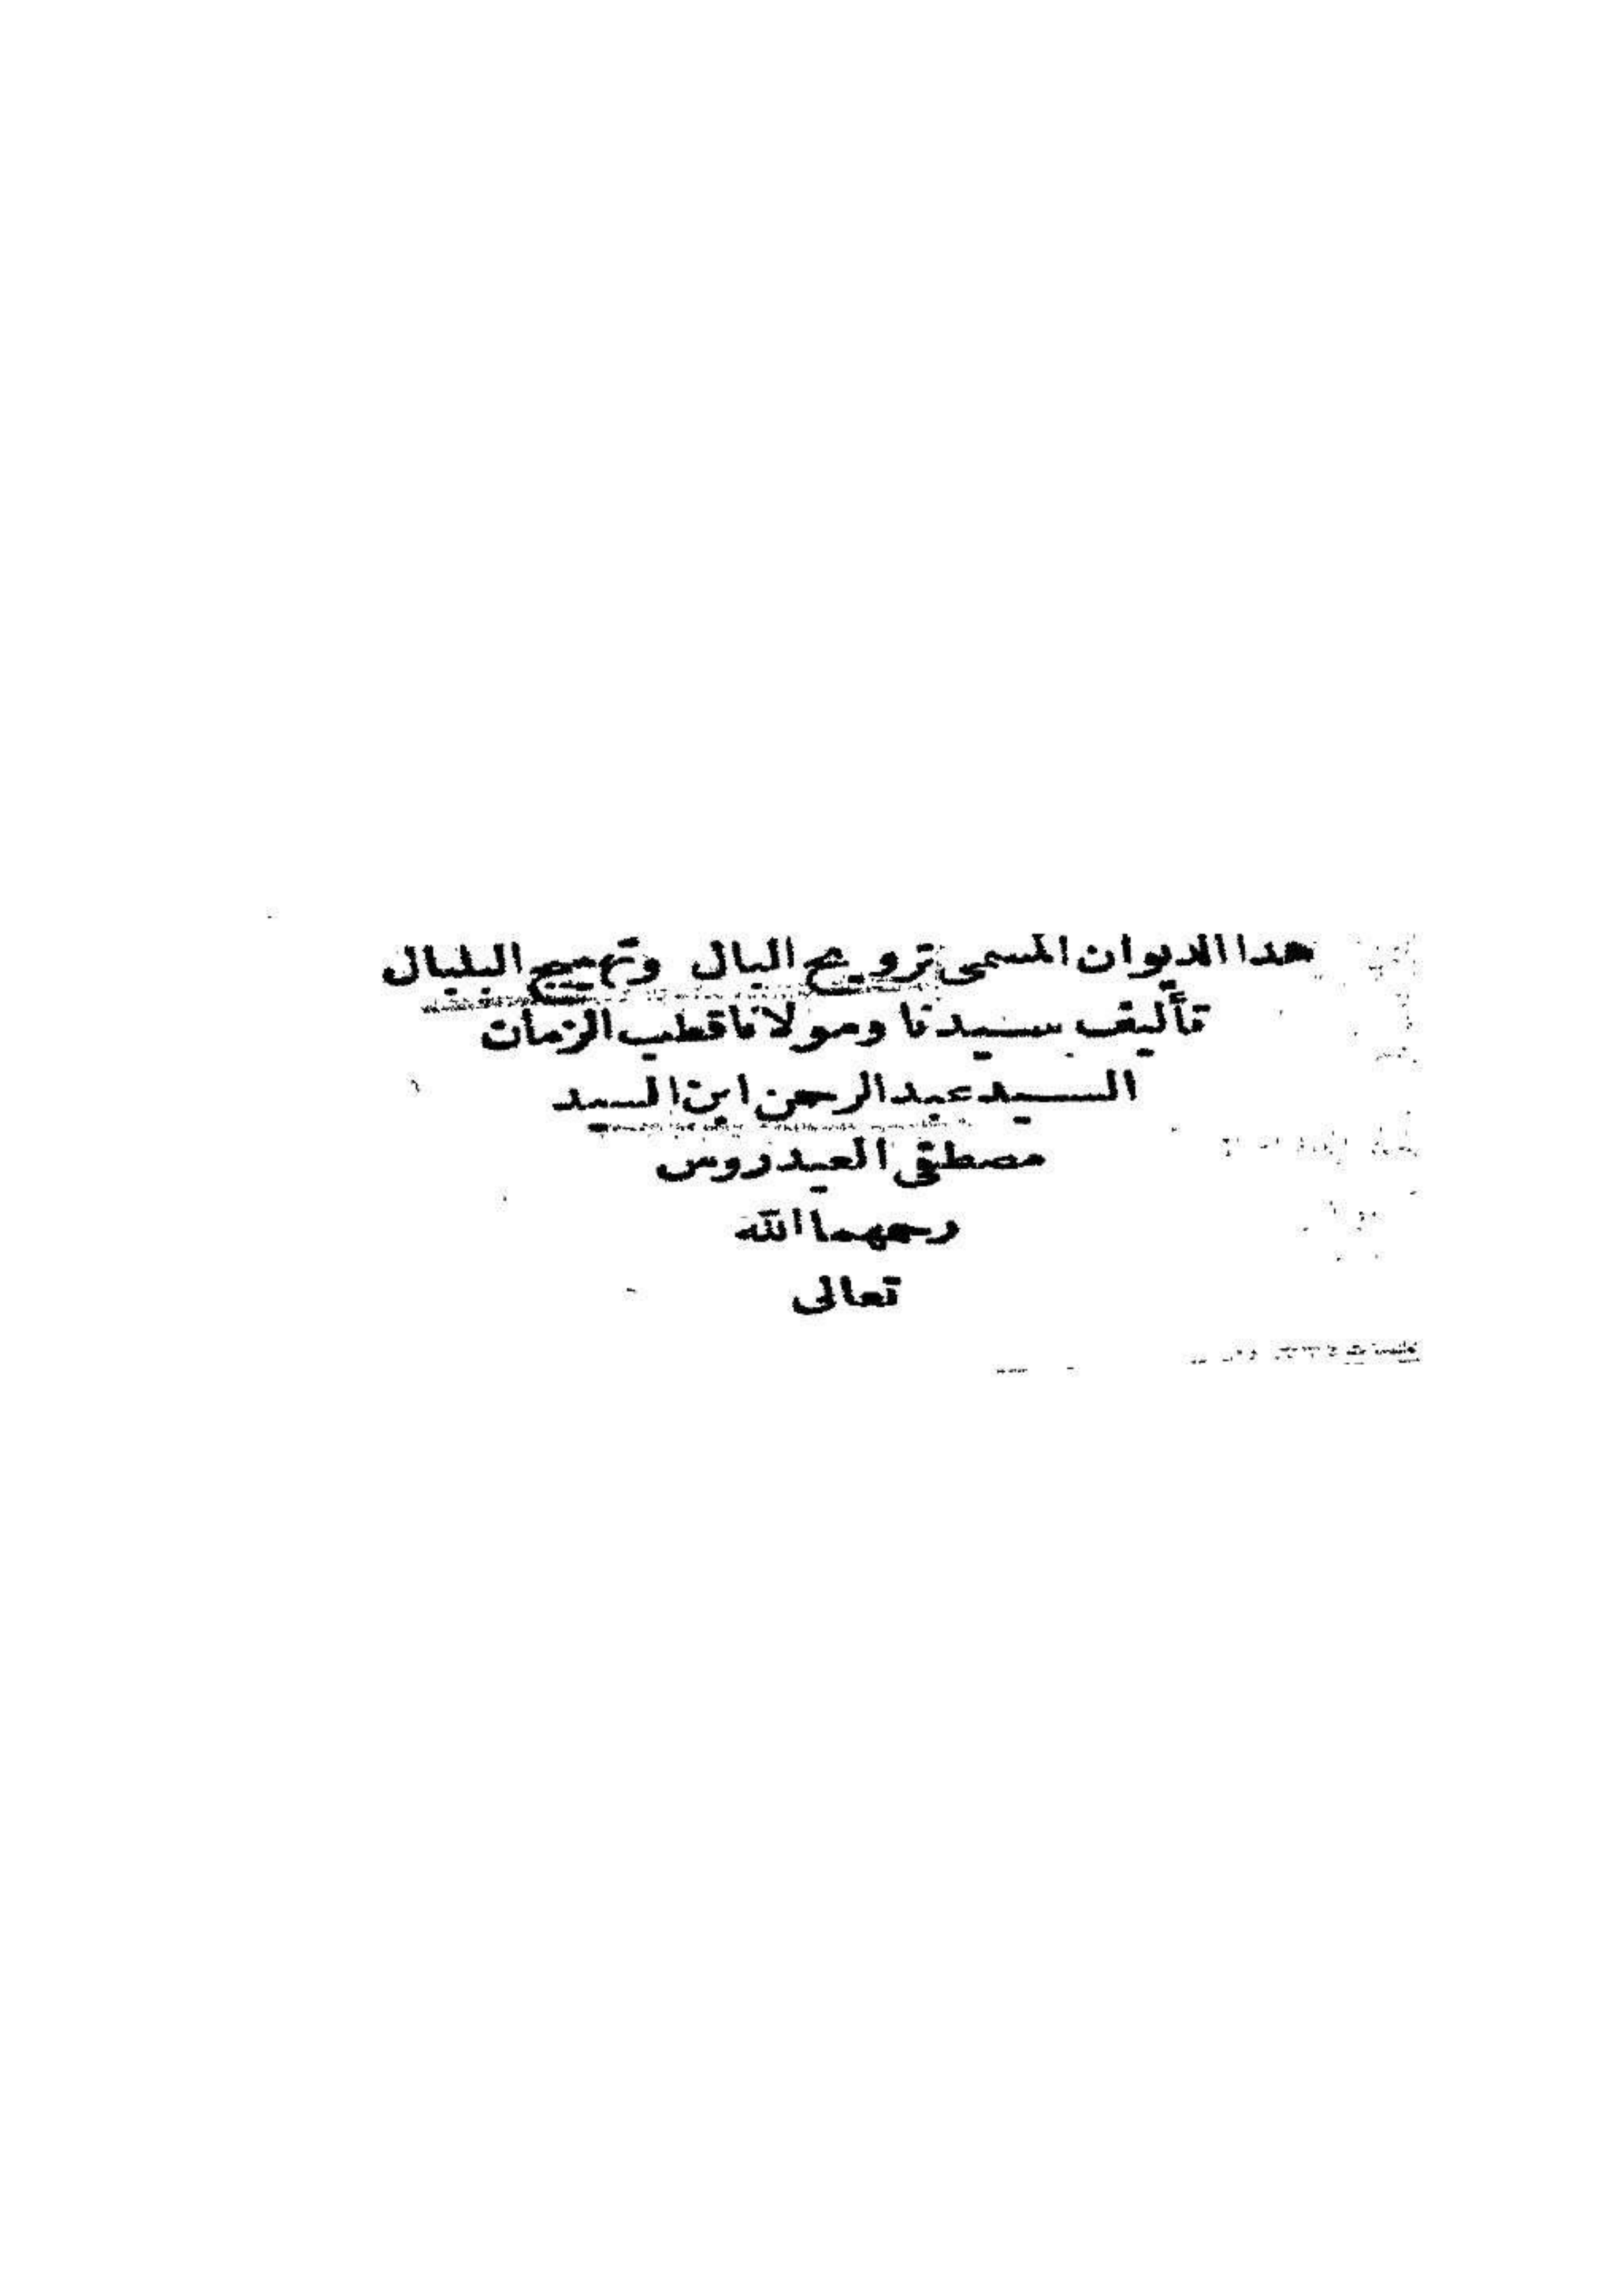 هذا الديوان المسمى ترويح البال وتهييج البلبال
تأليف سيدنا ومولانا قطب الزمان
السيد عبد الرحمن ابن السيد
مصطفى العيدروس
رحمهما الله
تعالى